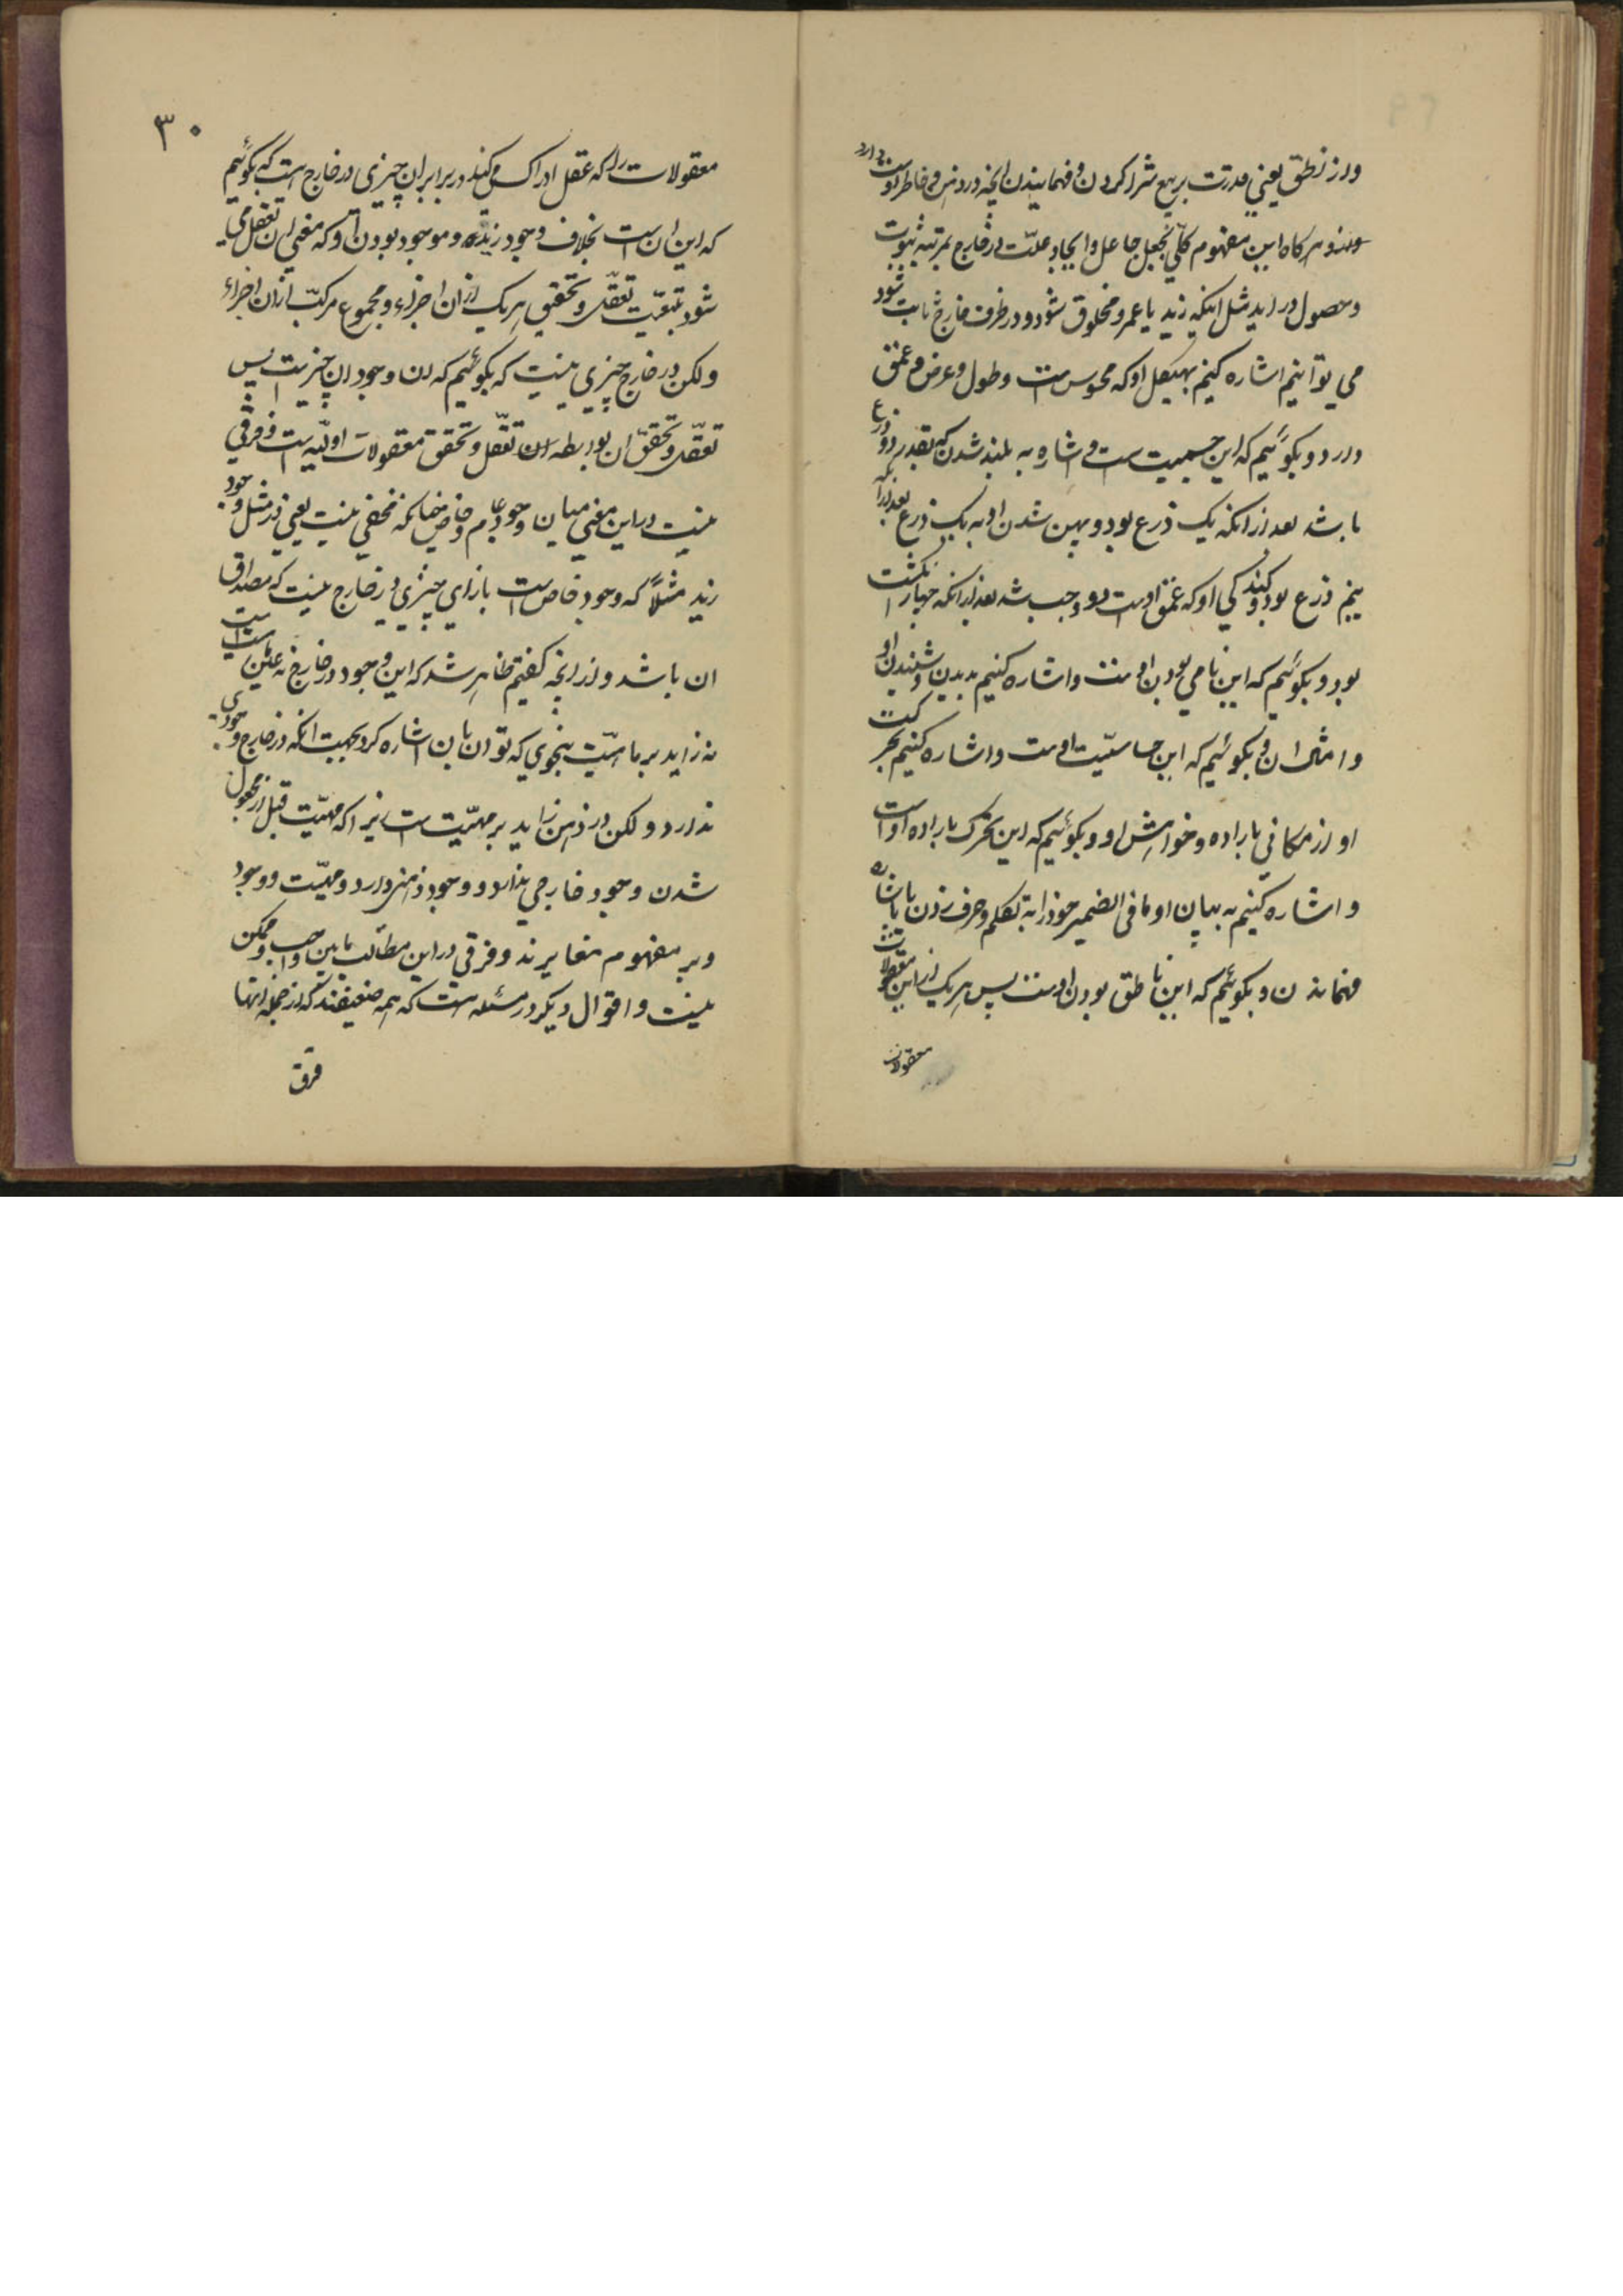 و از نطق یعنی قدرت بر بیع شرا کردن و فهمانیدن انچه در ذهن و خاطر اوست دارد
و هر کاه این مفهوم کلّی بجعل جاعل و ایجاد علّت در خارج بمرتبه ثبوت
و حصول در اید مثل اینکه زید یا عمرو مخلوق شود و در ظرف خارج ثابت شود
می توانیم اشاره کنیم بهیکل او که محسوس است و طول و عرض و عمق
دارد و بکوئیم که این جسمیت است و اشاره به بلند شدن که بقدر دو ذرع
باشد بعد از انکه یک ذرع بود و پهن شدن او به یک ذرع بعد از انکه
نیم ذرع بود و کندکی او که عمق اوست دو وجب شد بعد از انکه چهار انکشت
بود و بکوئیم که این نامی بودن اوست و اشاره کنیم بدیدن و شنیدن او
و امثال ان و بکوئیم که این حساسیّت اوست و اشاره کنیم بحرکت
او از مکانی باراده و خواهش او و بکوئیم که این تحرک باراده او است
و اشاره کنیم به بیان او ما فی الضمیر خود را به تکلم و حرف زدن یا باشاره
فهماندن و بکوئیم که این ناطق بودن اوست پس هر یک از این معقولات
معقولات
۳۰
معقولات را که عقل ادراک می کند در برابر ان چیزی در خارج است که بکوئیم
که این ان است بخلاف وجود زید و موجود بودن او که معنی ان تعقل می
شود بتبعیّت تعقّل و تحقق هر یک از ان اجزاء و مجموع مرکّب از ان اجزاء
و لکن در خارج چیزی نیست که بکوئیم که ان وجود ان چیز است پس
تعقّل و تحقق ان بواسطه ان تعقّل و تحقق معقولات اوّلیّه است و فرقی
نیست در این معنی میان وجود عام و خاص چنانکه مخفی نیست یعنی در مثل وجود
زید مثلاً که وجود خاص است بازای چیزی در خارج نیست که مصداق
ان باشد و از انچه کفتیم ظاهر شد که این وجود در خارج نه عین ماهیّت است
نه زاید بر ماهیّت بنحوی که توان بان اشاره کرد بجهت انکه در خارج وجودی
ندارد و لکن در ذهن زاید بر مهیّت است زیرا که مهیّت قبل از مجعول
شدن وجود خارجی ندارد و وجود ذهنی دارد و مهیّت و وجود
در مفهوم مغایرند و فرقی در این مطالب مابین واجب و ممکن
نیست و اقوال دیکر در مسئله هست که همه ضعیفند که از جمله انها
فرق